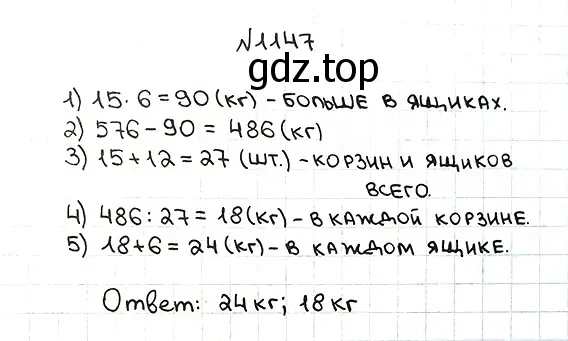 №1147
gdz.top
1) 15·6=90(кг) - БОЛЬШЕ В ЯЩИКАХ.
2) 576-90 = 486(кг)
3) 15+12=27 (шт.) - КОРЗИН И ЯЩИКОВ
ВСЕГО.
4) 486:27=18(кг) - В КАЖДОЙ КОРЗИНЕ.
5) 18+6=24(кг) - В КАЖДОМ ЯЩИКЕ.
Ответ: 24кг; 18кг